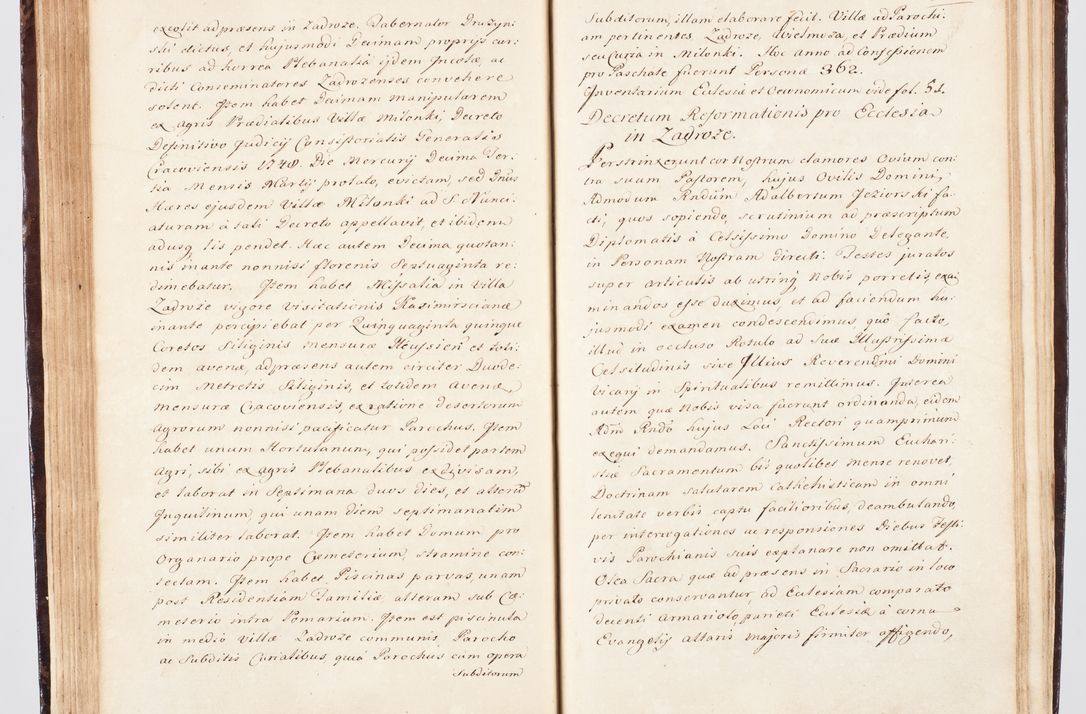 excolit adpræsens in Zadroze. Tabernator Druzyn-
ski dictus, et hujusmodi Decimam proprijs cur-
ribus ad horrea Plebanalia ijdem Incolæ, ac
dicti Conseminatores Zadrozenses convehere
solent. Item habet Decimam manipularem
ex Agris Prædialibus Villæ Milonki, Decreto
Definitivo Judicij Consistorialis Generalis
Cracoviensis 1748. Die Mercurij Decima Ter-
tia Mensis Martij prolato, evictam, sed Dnus
Hæres ejusdem Villæ Milonki ad S. Nunci-
aturam à tali Decreto appellavit, et ibidem
adusq lis pendet. Hæc autem Decima quotan-
nis in ante nonnisi florenis Septuaginta re-
dimebatur. Item habet Missalia in Villa
Zadroże vigore Visitationis Kazimirscianæ
inante percipiebat per Quinquaginta quinque
Coretos Siliginis mensuræ Ilcussien et toti-
dem avenæ, adpræsens autem circiter Duode-
cim Metretis Siliginis, et totidem Avenæ,
mensuræ Cracoviensis, ex ratione desertorum
agrorum nonnisi pacificatur Parochus. Item
habet unum Hortulanum, qui possidet partem
Agri, sibi ex agris Plebanalibus exdivisam,
et laborat in Septimana duos dies, et alterū
Inquilinum, qui unam diem septimanatim
similiter laborat. Item habet Domum pro
Organario prope Cæmeterium, stramine con-
tectam. Item habet Piscinas parvas, unam
post Residentiam Familiæ, alteram sub Cæ-
meterio intra Pomarium. Item est piscinula
in medio Villæ Zadroze communis, Parocho
ac Subditis Curialibus, quia Parochus cum opera
Subditorum
Subditorum, illam elaborare fecit. Villæ ad Parochi-
am pertinentes, Zadroze, Wielmoza, et Prædium
seu Curia in Milonki. Hoc anno ad Confessionem
pro Paschate fuerunt Personæ 362.
Inventarium Ecclesiæ et Oeconomicum vide fol. 51.
Decretum Reformationis pro Ecclesia
in Zadroże.
Perstrinxerunt cor Nostrum clamores Ovium con-
tra suum Pastorem, hujus Ovilis Domini,
Admodum Rndum Adalbertum Jeziorski fa-
cti, quos sopiendo, scrutinium ad præscriptum
Diplomatis à Celsissimo Domino Delegante,
in Personam Nostram directi. Testes juratos
super articulis ab utrinq Nobis porrectis, exa-
minandos esse duximus, et ad faciendum hu-
jusmodi examen condescendimus, quô facto,
illud in occluso Rotulo ad Suæ Illustrissimæ
Celsitudinis sive Illius Reverendmi Domini
Vicarij in Spiritualibus remittimus. Interea
autem quæ Nobis visa fuerunt ordinanda, eidem
Adm Rndo hujus Loci Rectori quamprimum
exequi demandamus. Sanctissimum Euchari-
stiæ Sacramentum bis quolibet mense renovet,
Doctrinam salutarem Cathehisticam in omni
lenitate verbis captu facilioribus, deambulando,
per interrogationes ac responsiones Diebus Festi-
vis Parochianis suis explanare non omittat.
Olea Sacra quæ ad præsens in Sacrario in loco
privato conservantur, ad Ecclesiam comparato
decenti Armariolo, parieti Ecclesiæ à cornu
Evangelij altaris majoris firmiter affigendo,